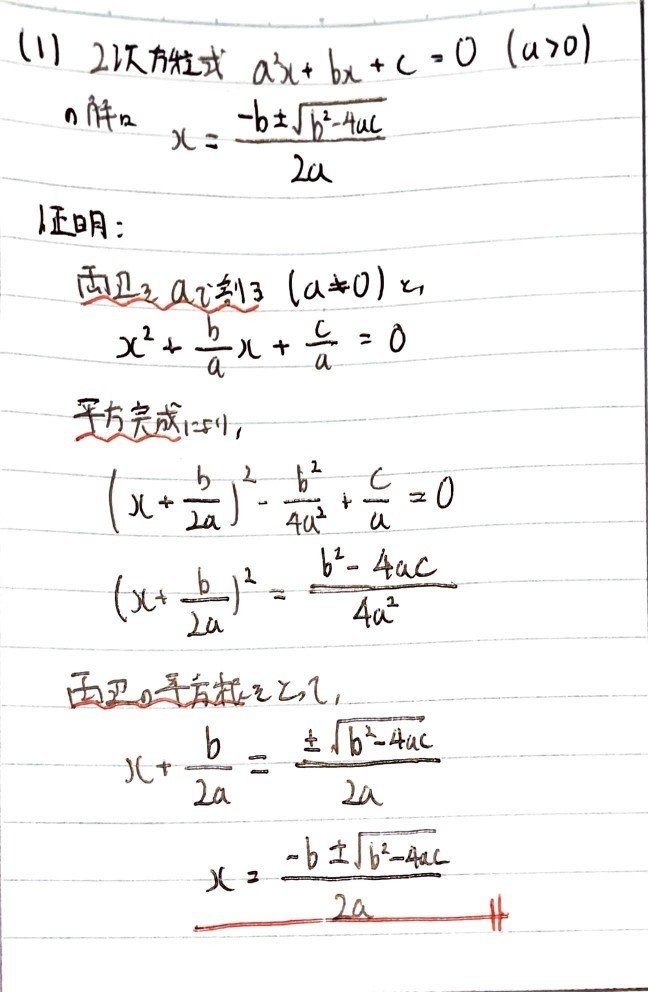 (1) 2次方程式 a²x + bx + c = 0 (a>0)
の解は x = \frac{-b±\sqrt{b²-4ac}}{2a}
証明:
両辺を aで割る (a≠0) と,
x² + \frac{b}{a}x + \frac{c}{a} = 0
平方完成により,
(x + \frac{b}{2a})² - \frac{b²}{4a²} + \frac{c}{a} = 0
(x + \frac{b}{2a})² = \frac{b² - 4ac}{4a²}
両辺の平方根をとって,
x + \frac{b}{2a} = \frac{±\sqrt{b²-4ac}}{2a}
x = \frac{-b ± \sqrt{b²-4ac}}{2a}